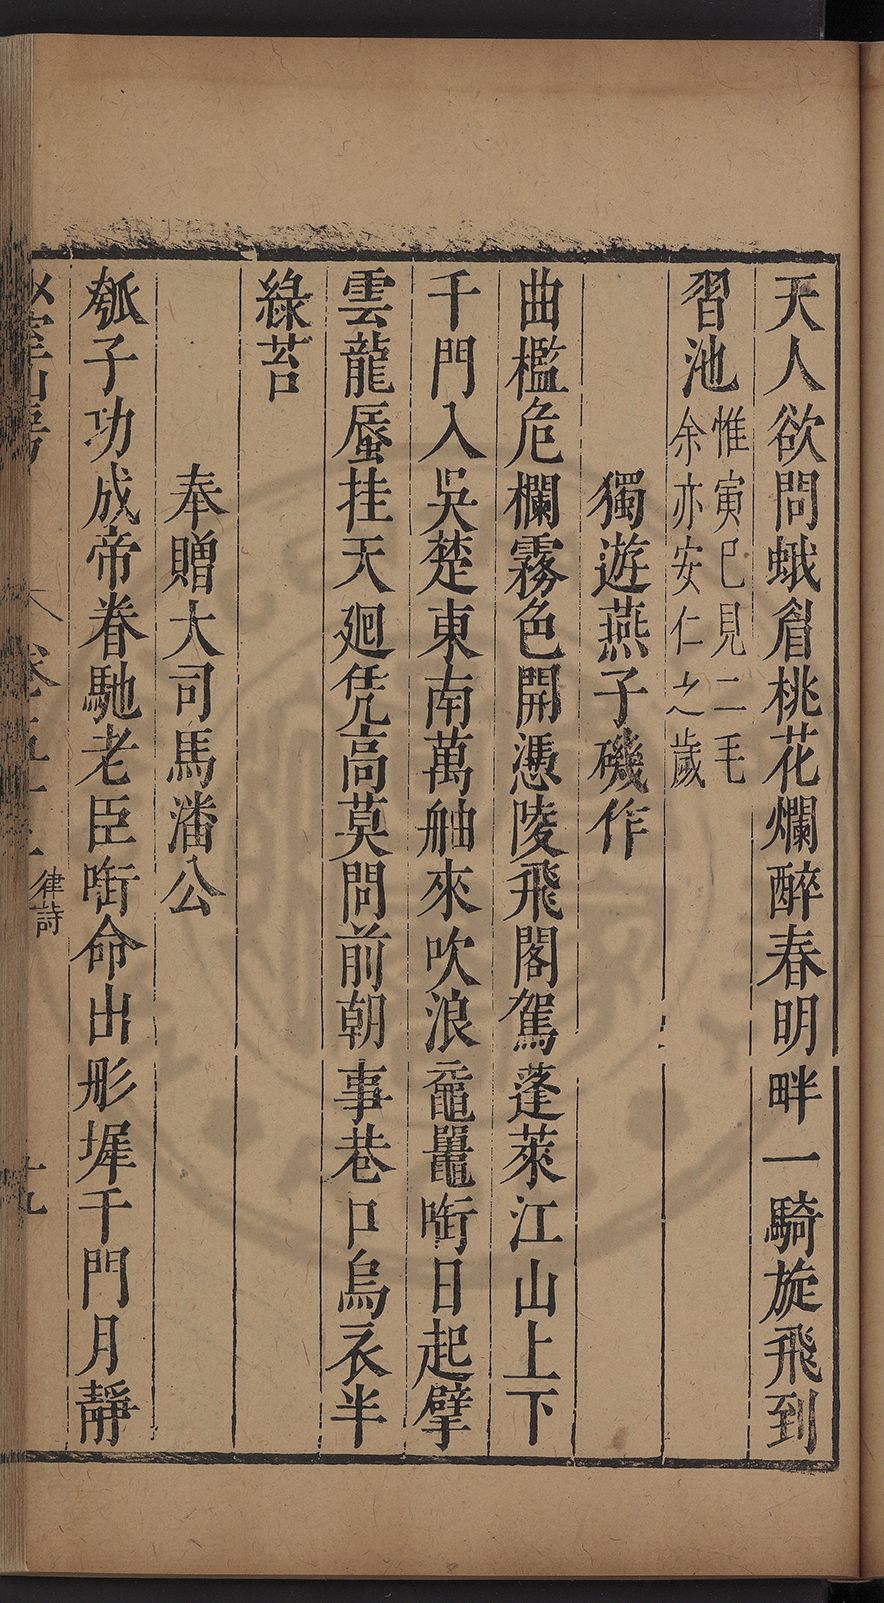 天人欲問蛾眉桃花爛醉春明畔一騎旋飛到
習池惟寅已見二毛
余亦安仁之歲
獨遊燕子磯作
曲檻危欄霧色開憑陵飛閣駕蓬萊江山上下
千門入吳楚東南萬舳來吹浪黿鼉啣日起擘
雲龍蜃挂天廻凭高莫問前朝事巷口烏衣半
綠苔
奉贈大司馬潘公
瓠子功成帝眷馳老臣啣命出彤墀千門月靜
律詩